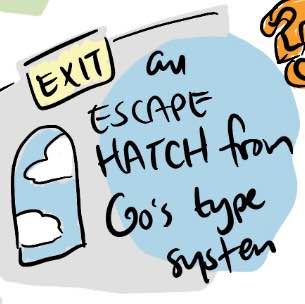 EXIT
an
ESCAPE
HATCH from
Go's type
system